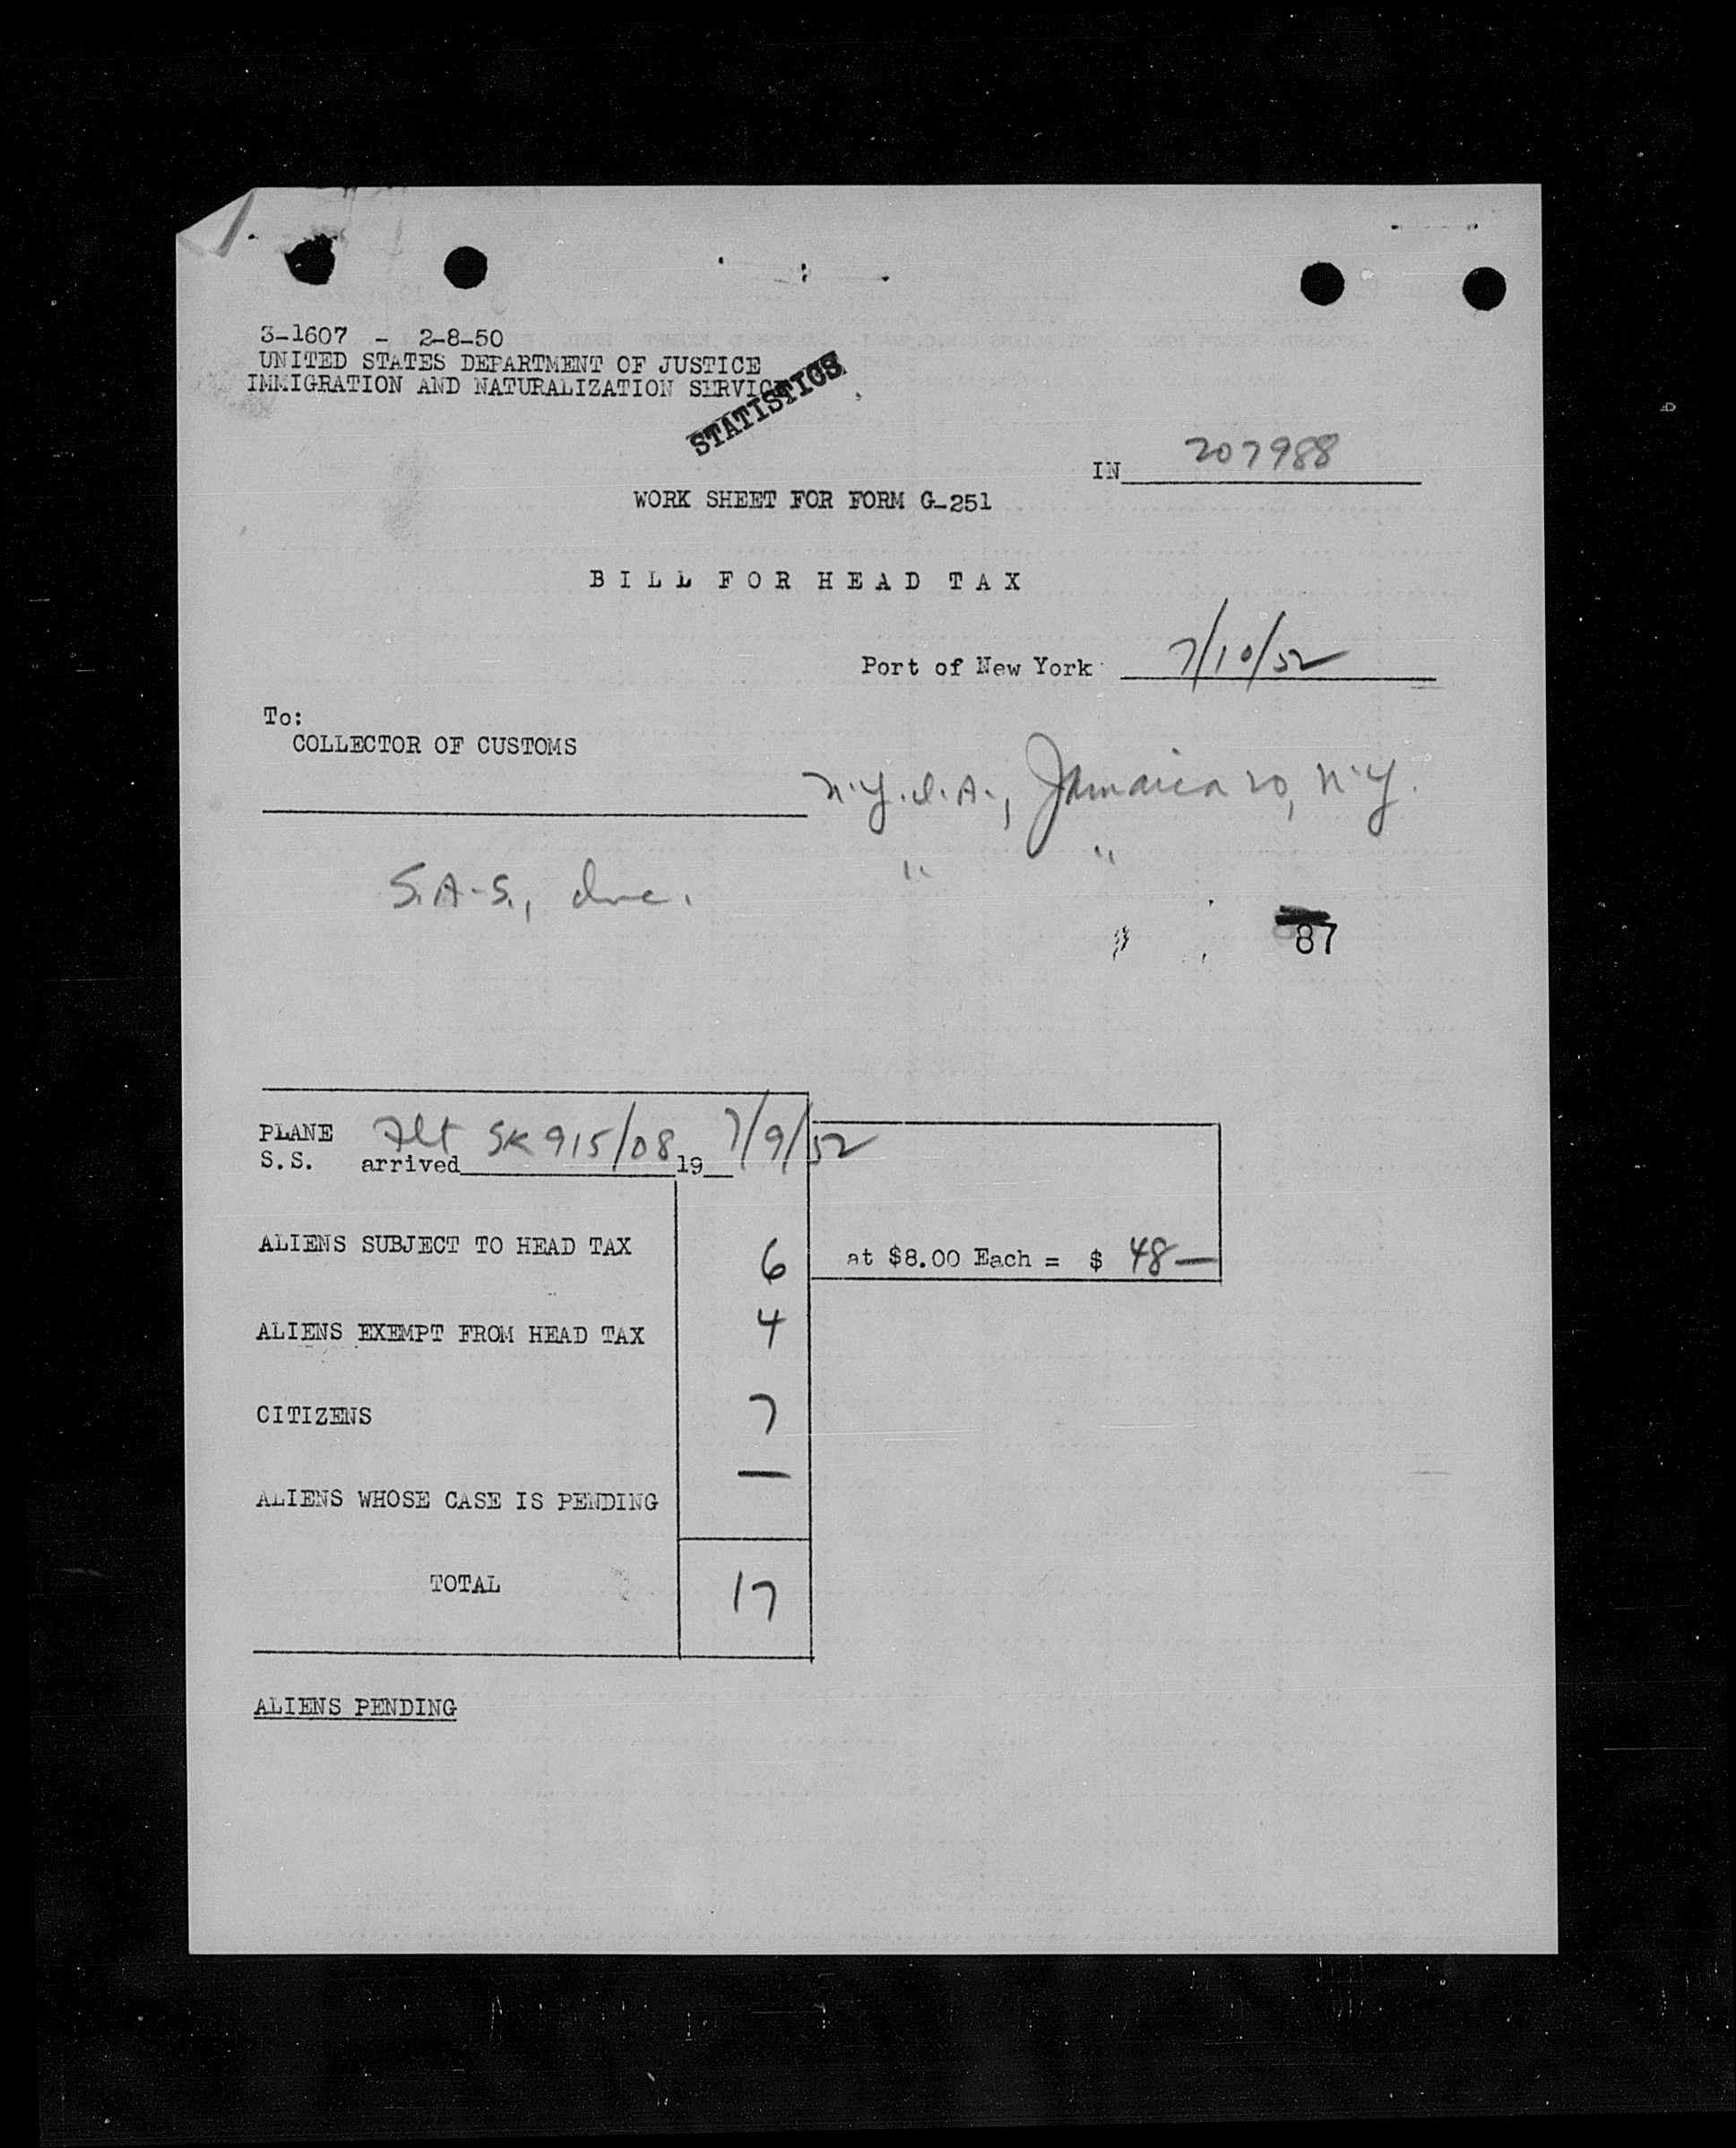 3-1607 - 2-8-50
UNITED STATES DEPARTMENT OF JUSTICE
IMMIGRATION AND NATURALIZATION SERVICE
STATISTICS
IN 207988
WORK SHEET FOR FORM G-251
BILL FOR HEAD TAX
Port of New York 7/10/52
To:
COLLECTOR OF CUSTOMS
N.Y.I.A., Jamaica 20, N.Y.
S.A.S., Inc. " "
87
PLANE Flt SK 915/08 7/9/52
S.S. arrived 19
ALIENS SUBJECT TO HEAD TAX 6 at $8.00 Each = $ 48—
ALIENS EXEMPT FROM HEAD TAX 4
CITIZENS 7
ALIENS WHOSE CASE IS PENDING —
TOTAL 17
ALIENS PENDING